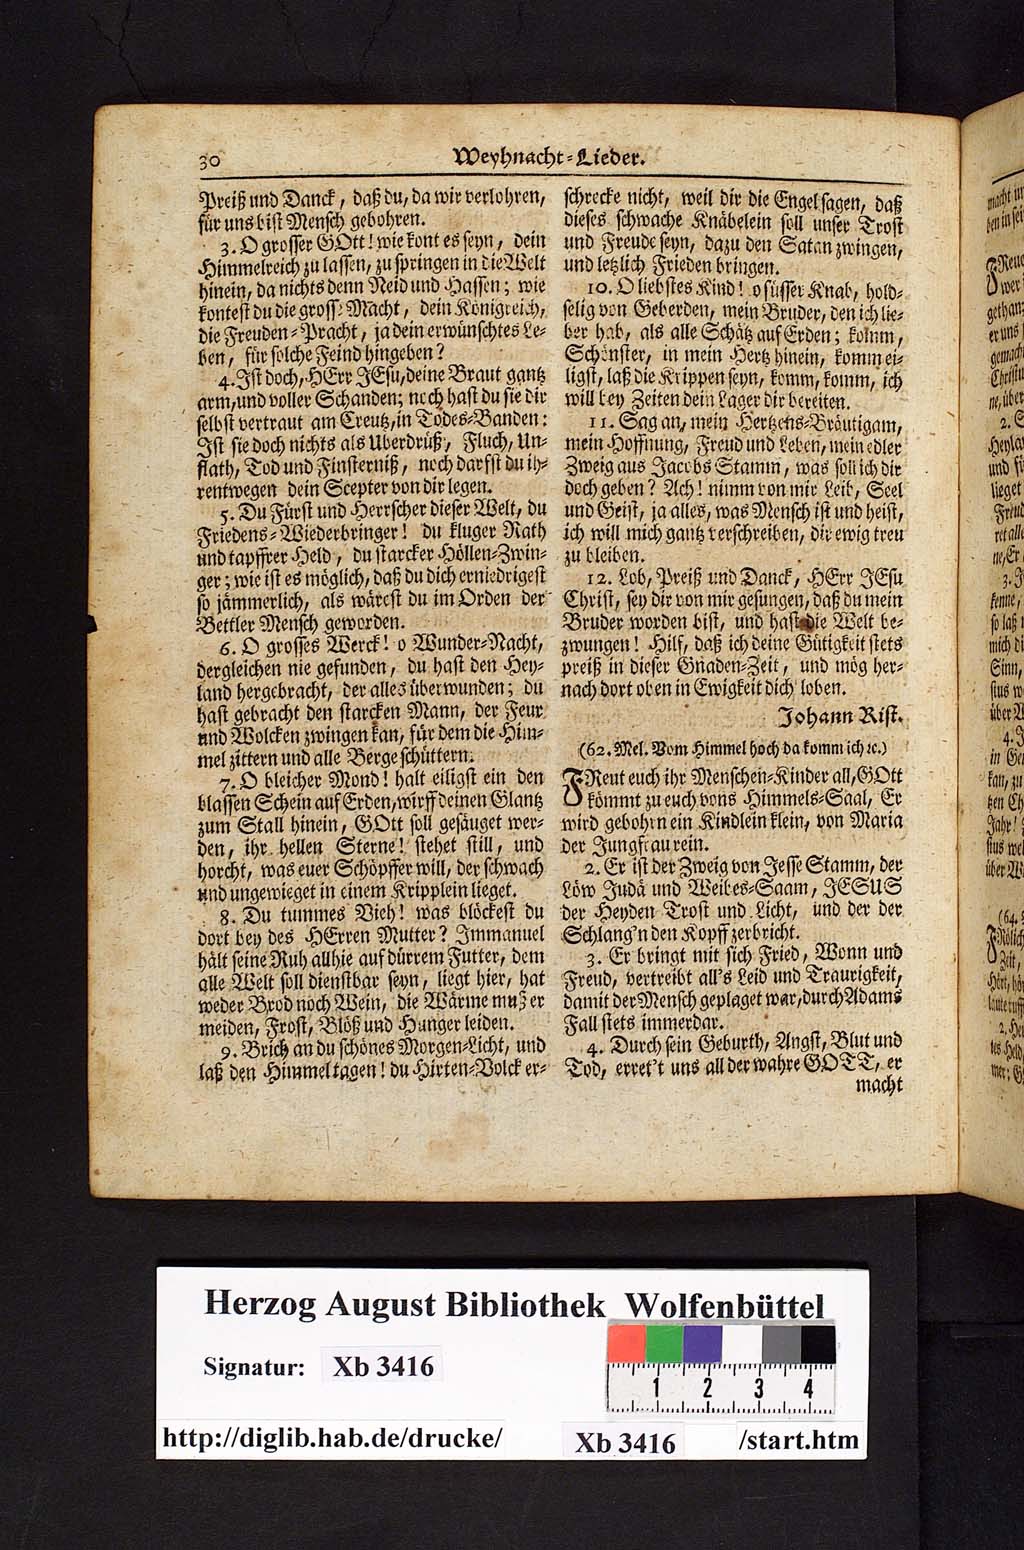 30
Weyhnacht-Lieder.
Preiß und Danck, daß du, da wir verlohren,
für uns bist Mensch gebohren.
3. O grosser GOtt! wie kont es seyn, dein
Himmelreich zu lassen, zu springen in die Welt
hinein, da nichts denn Neid und Hassen; wie
kontest du die gross- Macht, dein Königreich,
die Freuden-Pracht, ja dein erwünschtes Le-
ben, für solche Feind hingeben?
4. Ist doch, HErr JEsu, deine Braut gantz
arm, und voller Schanden; noch hast du sie dir
selbst vertraut am Creutz, in Todes-Banden:
Ist sie doch nichts als Uberdrüß, Fluch, Un-
flath, Tod und Finsterniß, noch darfst du ih-
rentwegen dein Scepter von dir legen.
5. Du Fürst und Herrscher dieser Welt, du
Friedens-Wiederbringer! du kluger Rath
und tapffrer Held, du starcker Höllen-Zwin-
ger; wie ist es möglich, daß du dich erniedrigest
so jämmerlich, als wärest du im Orden der
Bettler Mensch geworden.
6. O grosses Werck! o Wunder-Nacht,
dergleichen nie gefunden, du hast den Hey-
land hergebracht, der alles überwunden; du
hast gebracht den starcken Mann, der Feur
und Wolcken zwingen kan, für dem die Him-
mel zittern und alle Berge schüttern.
7. O bleicher Mond! halt eiligst ein den
blassen Schein auf Erden, wirff deinen Glantz
zum Stall hinein, GOtt soll gesäuget wer-
den, ihr hellen Sterne! stehet still, und
horcht, was euer Schöpffer will, der schwach
und ungewieget in einem Kripplein lieget.
8. Du tummes Vieh! was blöckest du
dort bey des HErren Mutter? Immanuel
hält seine Ruh allhie auf dürrem Futter, dem
alle Welt soll dienstbar seyn, liegt hier, hat
weder Brod noch Wein, die Wärme muß er
meiden, Frost, Blöß und Hunger leiden.
9. Brich an du schönes Morgen-Licht, und
laß den Himmel tagen! du Hirten-Volck er-
schrecke nicht, weil dir die Engel sagen, daß
dieses schwache Knäbelein soll unser Trost
und Freude seyn, dazu den Satan zwingen,
und letzlich Frieden bringen.
10. O liebstes Kind! o süsser Knab, hold-
selig von Geberden, mein Bruder, den ich lie-
ber hab, als alle Schätz auf Erden; komm,
Schönster, in mein Hertz hinein, komm ei-
ligst, laß die Krippen seyn, komm, komm, ich
will bey Zeiten dein Lager dir bereiten.
11. Sag an, mein Hertzens-Bräutigam,
mein Hoffnung, Freud und Leben, mein edler
Zweig aus Jacobs Stamm, was soll ich dir
doch geben? Ach! nimm von mir Leib, Seel
und Geist, ja alles, was Mensch ist und heist,
ich will mich gantz verschreiben, dir ewig treu
zu bleiben.
12. Lob, Preiß und Danck, HErr JEsu
Christ, sey dir von mir gesungen, daß du mein
Bruder worden bist, und hast die Welt be-
zwungen! Hilf, daß ich deine Gütigkeit stets
preiß in dieser Gnaden-Zeit, und mög her-
nach dort oben in Ewigkeit dich loben.
Johann Rist.
(62. Mel. Vom Himmel hoch da komm ich ꝛc.)
FReut euch ihr Menschen-Kinder all, GOtt
kömmt zu euch vons Himmels-Saal, Er
wird gebohrn ein Kindlein klein, von Maria
der Jungfrau rein.
2. Er ist der Zweig von Jesse Stamm, der
Löw Judä und Weibes-Saam, JESUS
der Heyden Trost und Licht, und der der
Schlang'n den Kopff zerbricht.
3. Er bringt mit sich Fried, Wonn und
Freud, vertreibt all's Leid und Traurigkeit,
damit der Mensch geplaget war, durch Adams
Fall stets immerdar.
4. Durch sein Geburth, Angst, Blut und
Tod, erret't uns all der wahre GOTT, er
macht
Herzog August Bibliothek Wolfenbüttel
Signatur: Xb 3416
1 2 3 4
http://diglib.hab.de/drucke/ Xb 3416 /start.htm